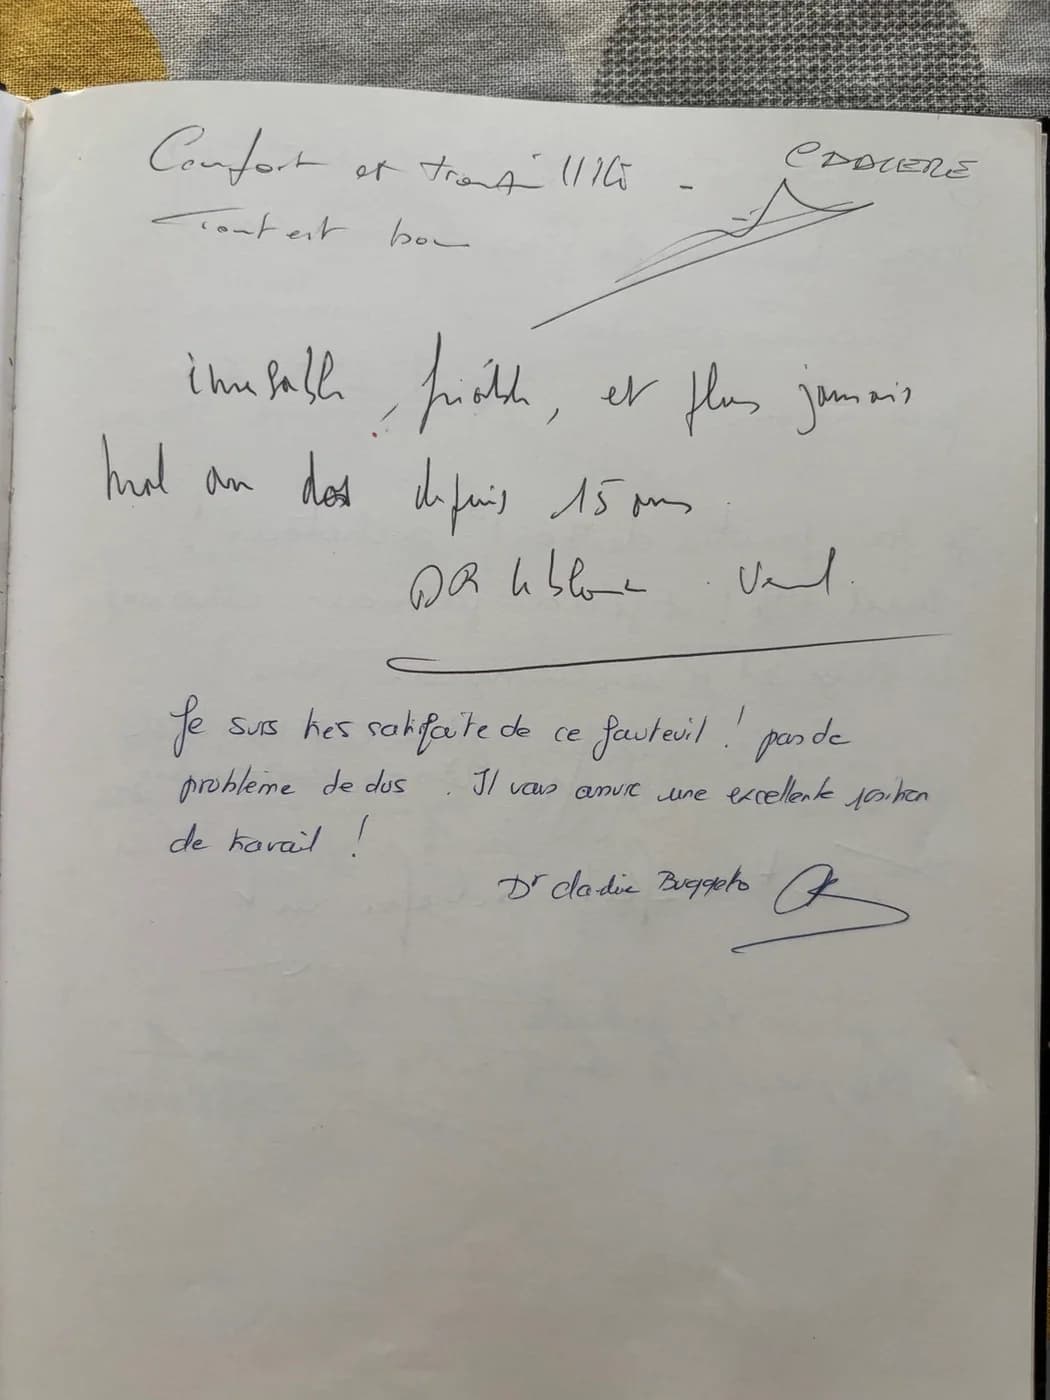 Confort et
Tout est bon
inusable, fiable, et plus jamais
mal au dos depuis 15 ans
DR leblanc
Je suis très satisfaite de ce fauteuil ! pas de
problème de dos . Il vous assure une excellente position
de travail !
Dr